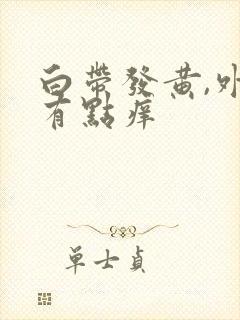 白帶發黃,外
有點痒
單士貞